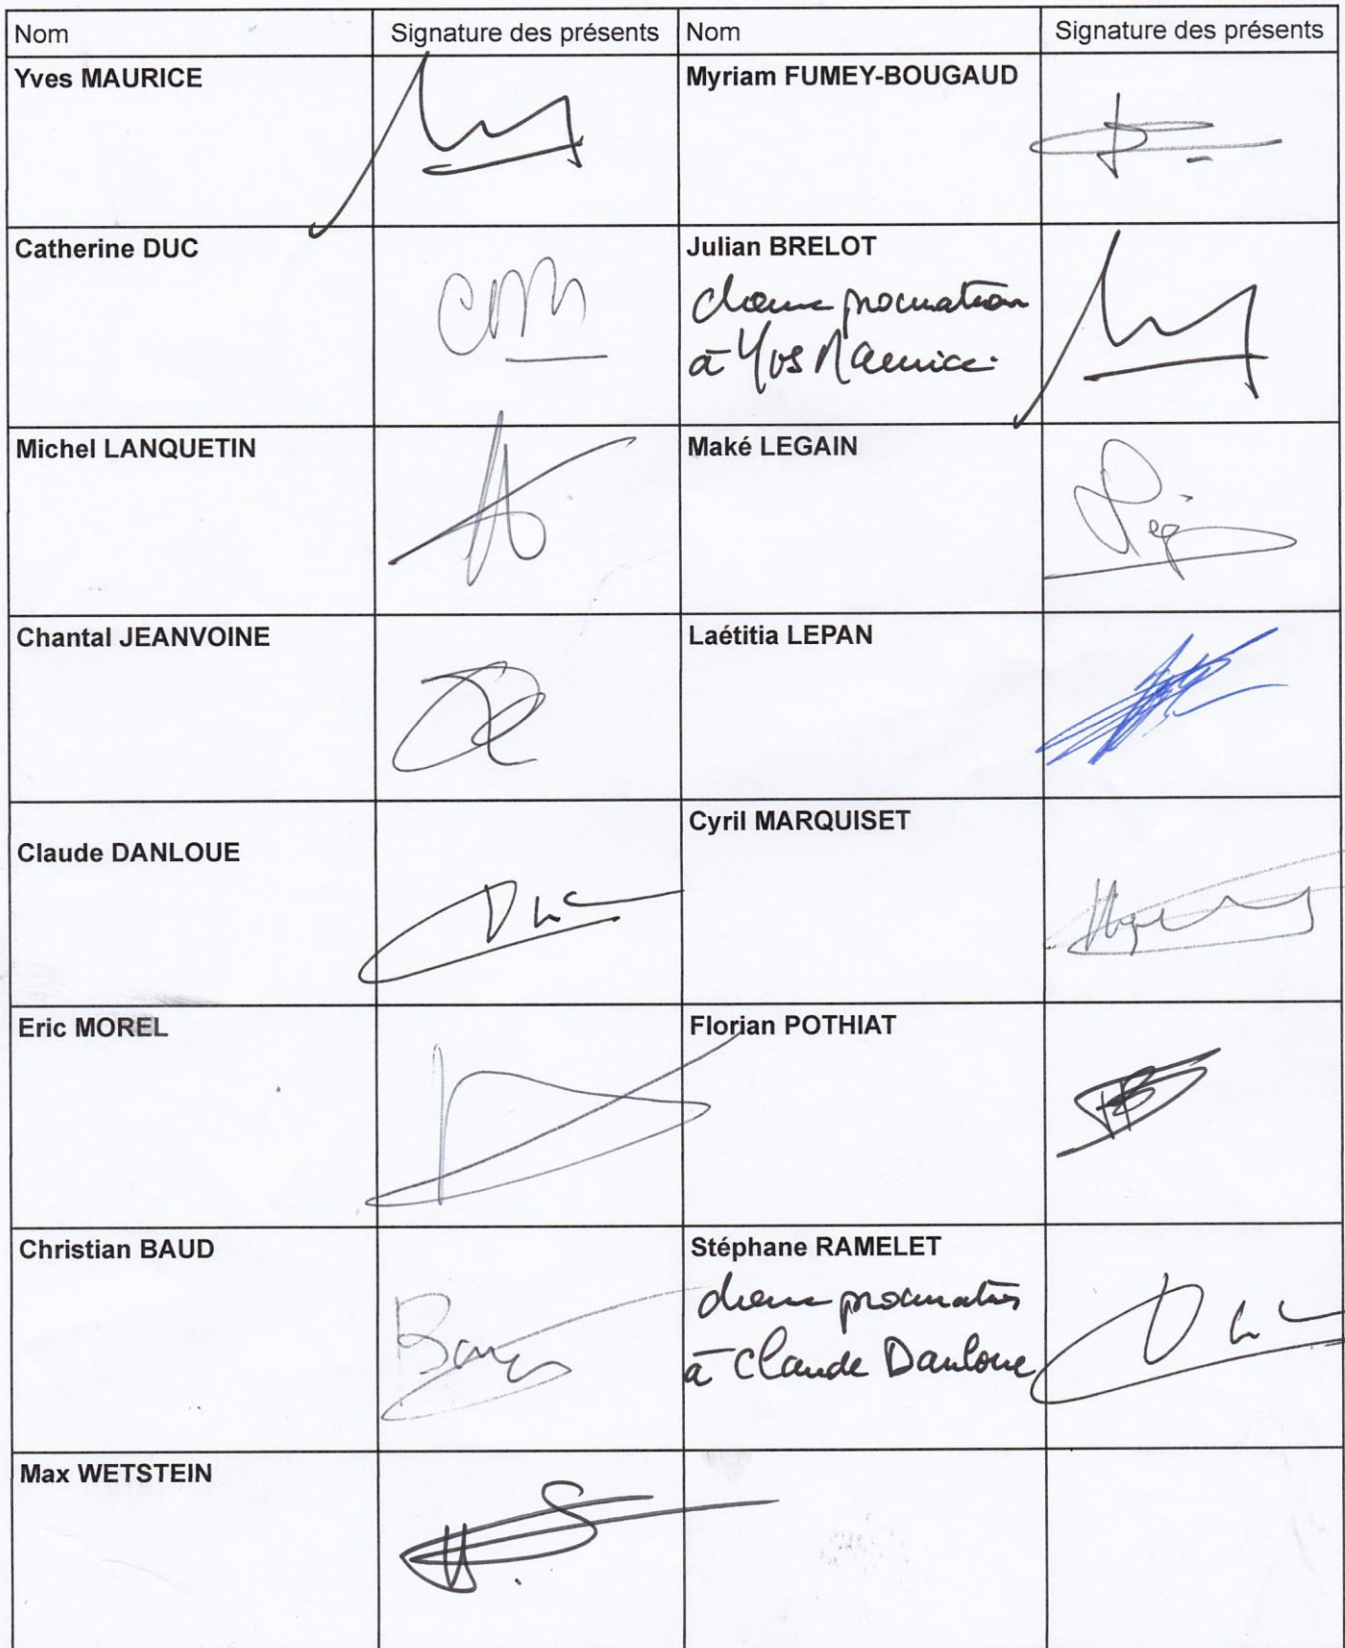 Nom Signature des présents Nom Signature des présents
Yves MAURICE Myriam FUMEY-BOUGAUD
Catherine DUC Julian BRELOT
donne procuration
à Yves Maurice.
Michel LANQUETIN Maké LEGAIN
Chantal JEANVOINE Laétitia LEPAN
Cyril MARQUISET
Claude DANLOUE
Eric MOREL Florian POTHIAT
Christian BAUD Stéphane RAMELET
donne procuration
à Claude Danloue
Max WETSTEIN